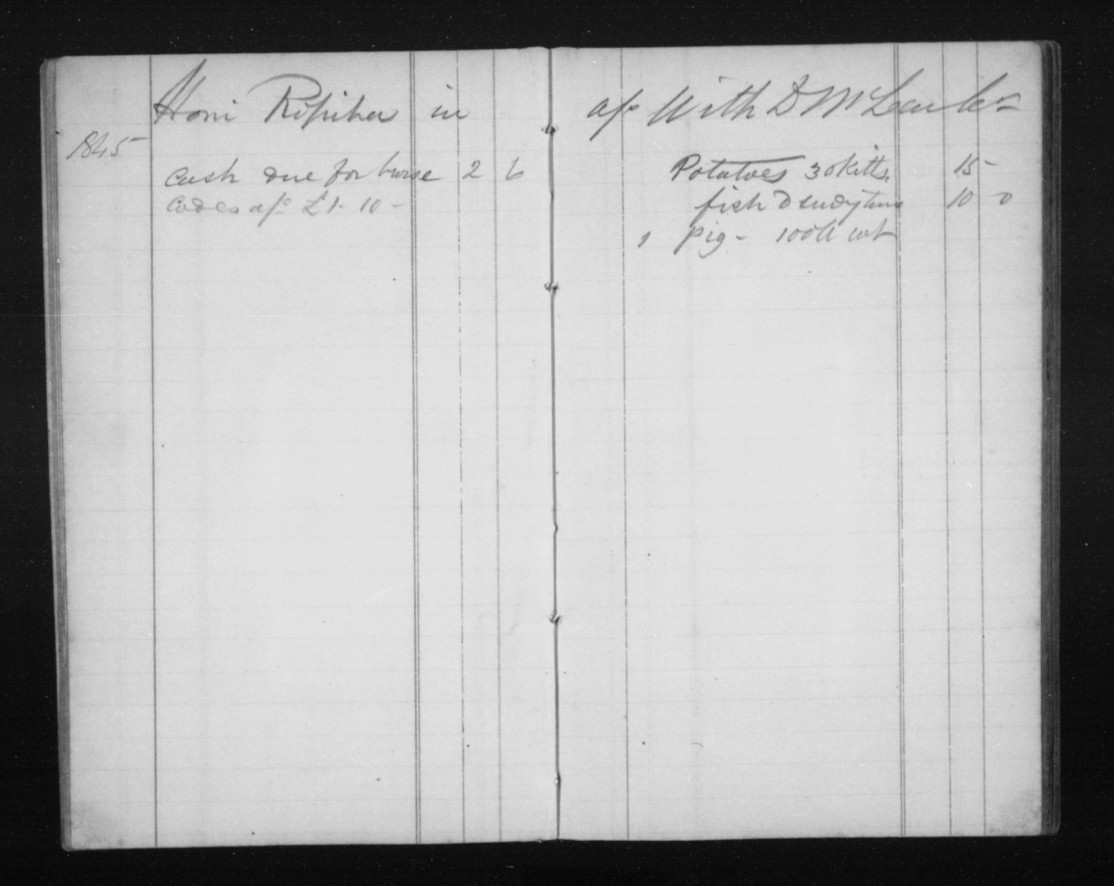 Honi Ripiha in a/c With D McLean Cr
1845
Cash due for horse 2 6
Codes a/c £1 - 10 -
Potatoes 30 kitts 15 -
fish D sundry times 10 0
1 pig - 100 lb wt